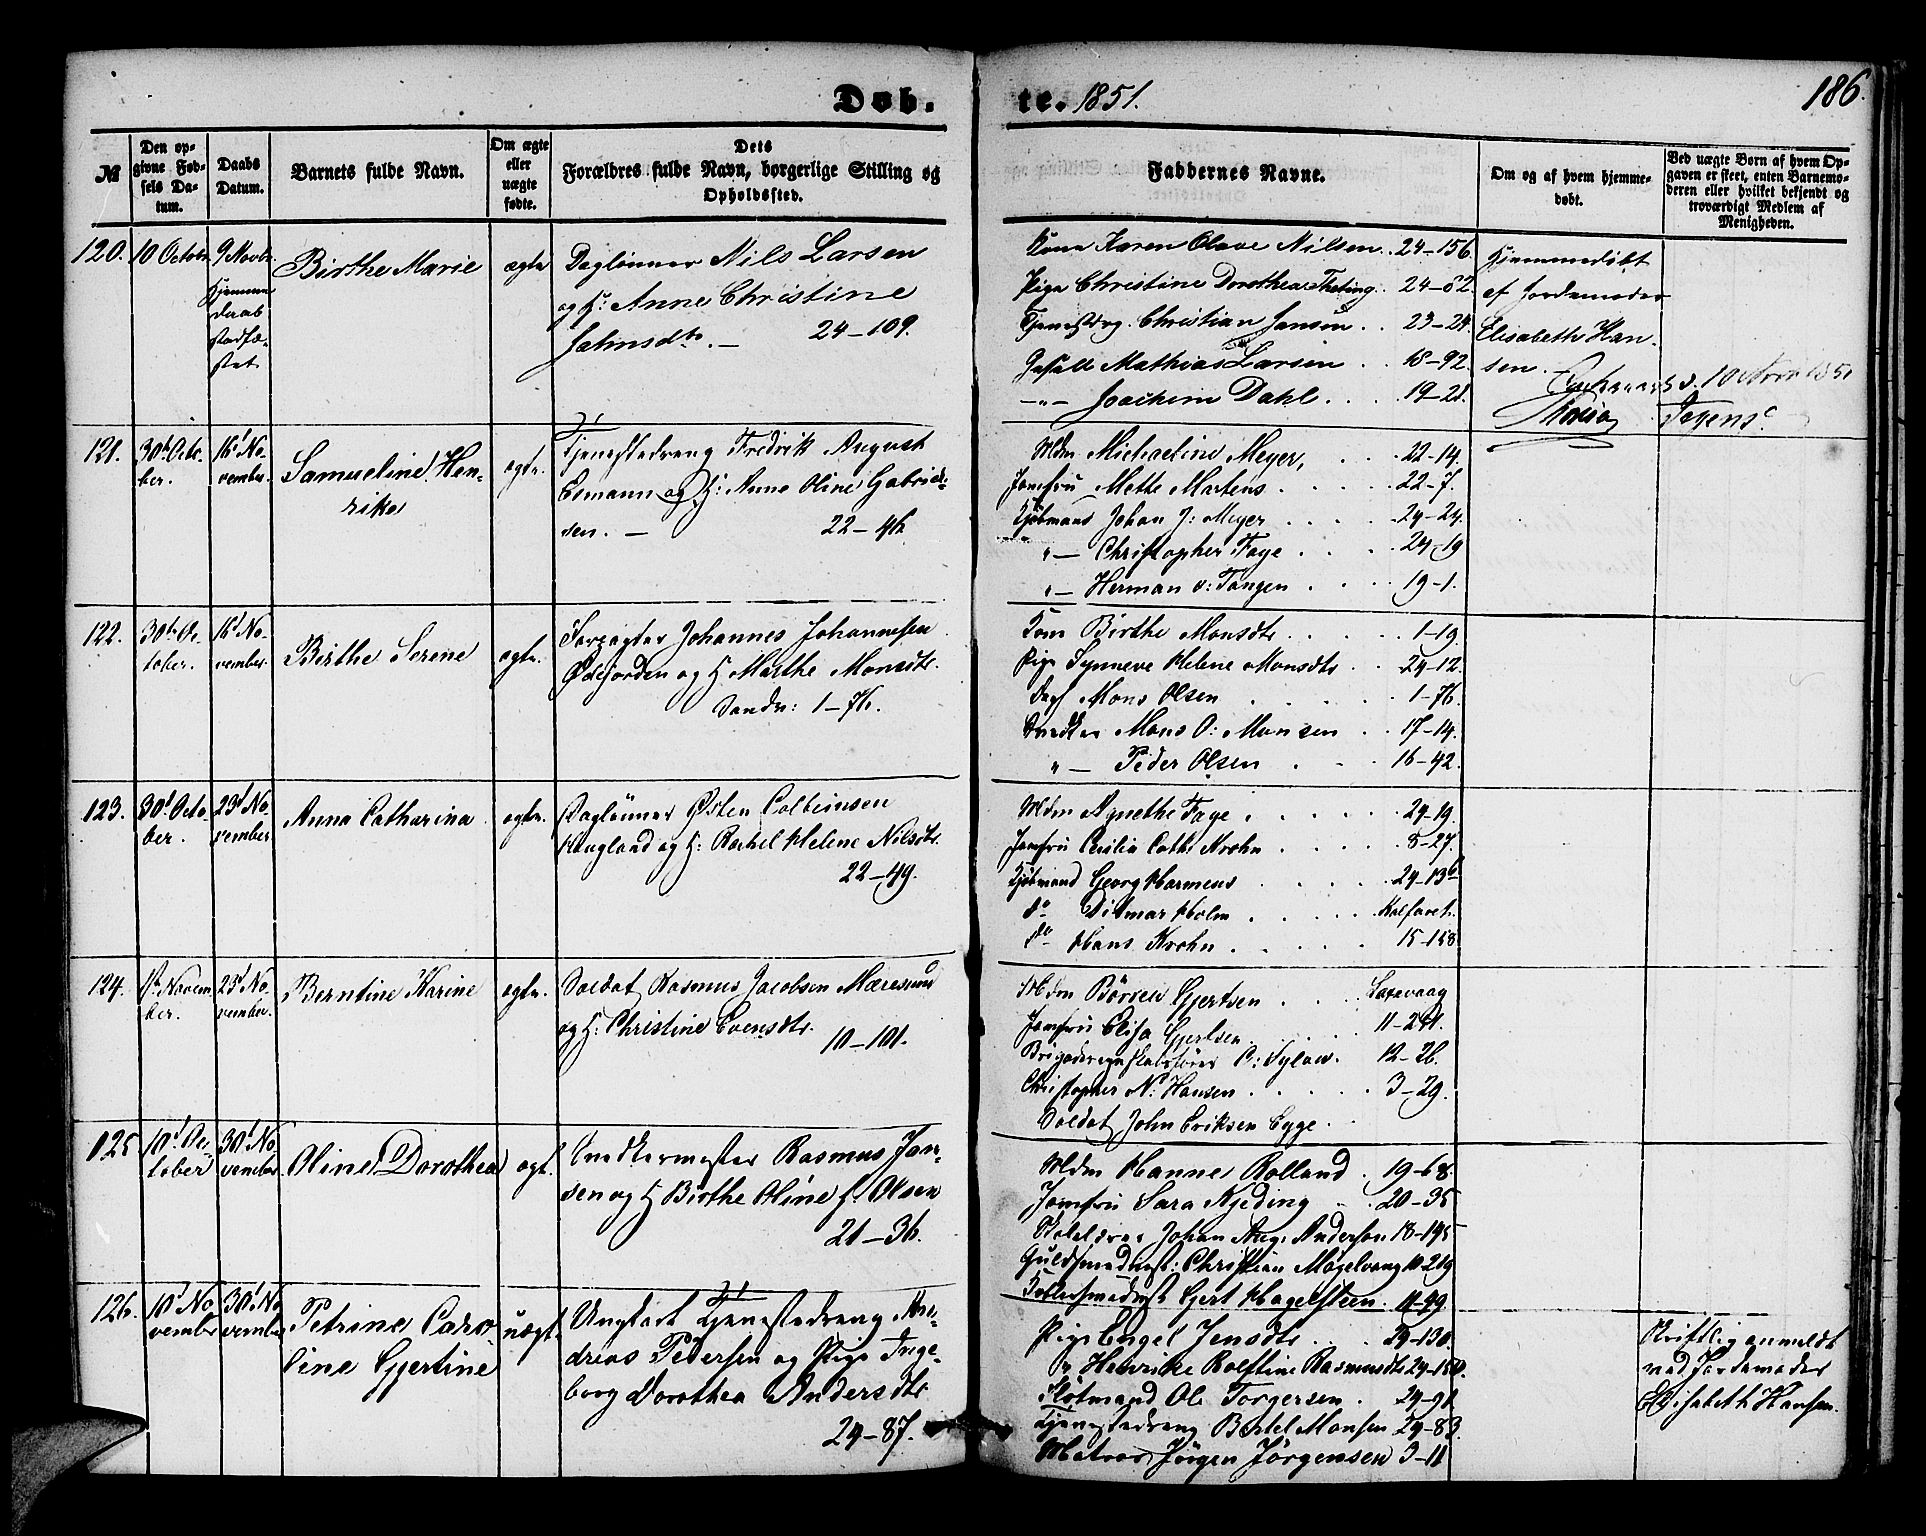 Døb.
te. 1851.
186.
№
Den opgivne Fødsels Datum.
Daabs Datum.
Barnets fulde Navn.
Om ægte eller uægte fødte.
Dets Forældres fulde Navn, borgerlige Stilling og Opholdssted.
Faddernes Navne.
Om og af hvem hjemmedøbt.
Ved uægte Børn af hvem Opgaven er skeet, enten Barnemoderen eller hvilket bekjendt og troværdigt Medlem af Menigheden.
120. 10 Octobr. 9 Novbr.
Hjemmedaab stadfæstet.
Birthe Marie
ægte
Daglønner Nils Larsen
og H: Anne Christine
Johnsdtr. — 24–109.
Kone Karen Olave Nilsen. 24–156.
Pige Christine Dorothea Theting. 24–82.
Christian Jansen . . 23–24.
Mathias Larsen . 18–92.
–"– Joachim Dahl. . . . 19–21.
Hjemmedøbt
af Jordemoder
Elisabeth Han-
sen.
121. 30te Octo-
ber. 16d No-
vember.
Samueline Hen-
rikе
ægte.
Tjenestedreng Fredrik August
Esmann og H: Anne Oline Gabriel-
sen. — 22–46.
Mdm Michaeline Meyer, . . . 22–14.
Jomfru Mette Martens . . . . 22–7.
Kjøbmand Johan J: Meyer . . . . 24–24.
"– Christopher Faye . . . . 24–19
"– Herman v: Tangen . . . . 19–1.
122. 30te Oc-
tober. 16d No-
vember.
Birthe Serine
ægte.
Forpagter Johannes Johannesen
Ødejorden og H. Marthe Monsdtr.
Sandv: 1–76.
Kone Birthe Monsdtr. . . . . 1–19
Pige Synneve Helene Monsdtr . . 24–12.
Mons Olsen . . . . . 1–76.
Snedker Mons O: Monsen . . 17–14.
"– Peder Olsen . . . 16–42.
123. 30d Octo-
ber. 23d No-
vember
Anna Catharina
ægte.
Daglønner Østen Colbeinsen
Haugland og H: Rachel Helene Nilsdtr.
22–49.
Mdm Agnethe Faye . . . . . 24–19.
Jomfru Cecilia Cathr Krohn . . . . 8–27.
Kjøbmand Georg Harmens . . . . 24–13b
do Ditmar Holm . . . . Kalfaret.
do Hans Krohn . . . . . 15–158
124. 1te Novem-
ber. 23d No-
vember.
Berntine Karine
ægte.
Soldat Rasmus Jacobsen Mæresund
og H: Christine Evensdtr.
10–101.
Mdm Børsen Gjertsen . . . . Laxevaag
Jomfru Elisa Gjertsen . . . . 11–251.
C: Sylow. 12–26.
Christopher N. Hansen . . . . . 3–29.
Soldat John Eriksen Eyge . .
125 10d Oc-
tober 30d No-
vember
Oline Dorothea
ægt.
Snedkermester Rasmus Jan-
sen og H Birthe Oline f. Olsen
21–36.
Mdm Hanne Rolland . 19–68.
Jomfru Sara Kjeding . . 20–35
Johan Aug: Anderson 18–195
Guldsmedmst: Christian Møgelvang 10–219
Gjert Hagelsteen. 11–99.
126. 10d No-
vember 30d No-
vember
Petrine Caro-
line Gjertine
uægt.
Ungkarl Tjenestedreng An-
dreas Pedersen og Pige Inge-
borg Dorothea Andersdtr.
24–87.
Pige Engel Jensdtr. . . . 24–130.
" Henrikke Rolftine Rasmusdtr 24–150.
Flotmand Ole Torgersen . 24–91
Tjenestedreng Bertel Monsen 24–83.
Matros Jørgen Jørgensen 3–11
Skriftlig anmeldt
ved Jordemoder
Elisabeth Hansen.